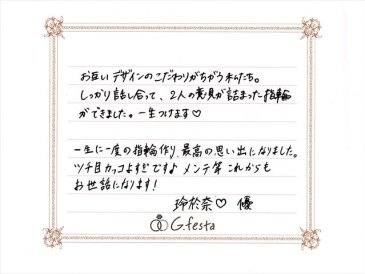 お互いデザインのこだわりがちがう私たち。
しっかり話し合って、2人の意見が詰まった指輪
ができました。一生つけます♡
一生に一度の指輪作り、最高の思い出になりました。
ツチ目カッコよすぎですよ メンテ等 これからも
お世話になります!
玲於奈♡ 優
G.festa